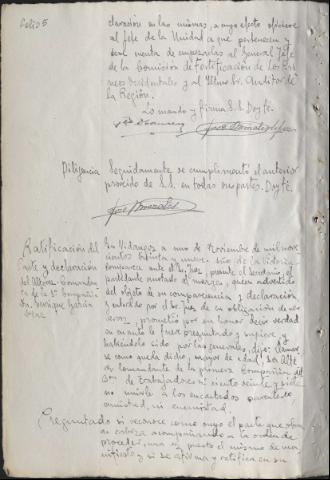 Folio 5
claración en las mismas, a cuyo efecto ofíciese
al Jefe de la Unidad a que pertenecen y
del General Jefe
de la Comisión de Fortificación de los Piri-
neos Occidentales y al Iltmo Sr. Auditor de
la Región.
Lo mando y firma S.S. Doy fé.
Diligencia Seguidamente se cumplimentó el anterior
proveido de S.S. en todas sus partes. Doy fé.
José
Ratificación del
parte y declaración
del Alférez Comandan-
te de la 1ª Compañía
Don Enrique García
En Vidangoz a uno de Noviembre de mil nove-
cientos treinta y nueve Año de la Victoria
comparece ante el Sr. Juez, presente el Secretario, el
anotado al margen, quien advertido
del objeto de su comparecencia y declaración
y enterado por el Sr. Juez de su obligación de ser
veraz, prometió por su honor decir verdad
en cuanto le fuese preguntado y supiere y
habiéndolo sido por las generales, dijo: llamar-
se como queda dicho, mayor de edad, ser Alfé-
rez Comandante de la primera Compañía del
Bón de Trabajadores nº ciento veinte y siete
no unirle a los encartados parentesco
amistad, ni enemistad.
Preguntado si reconoce como suyo el parte que obra
en cabeza acompañando a la orden de
proceder, una vez puesto el mismo de ma-
nifiesto y si se afirma y ratifica en su